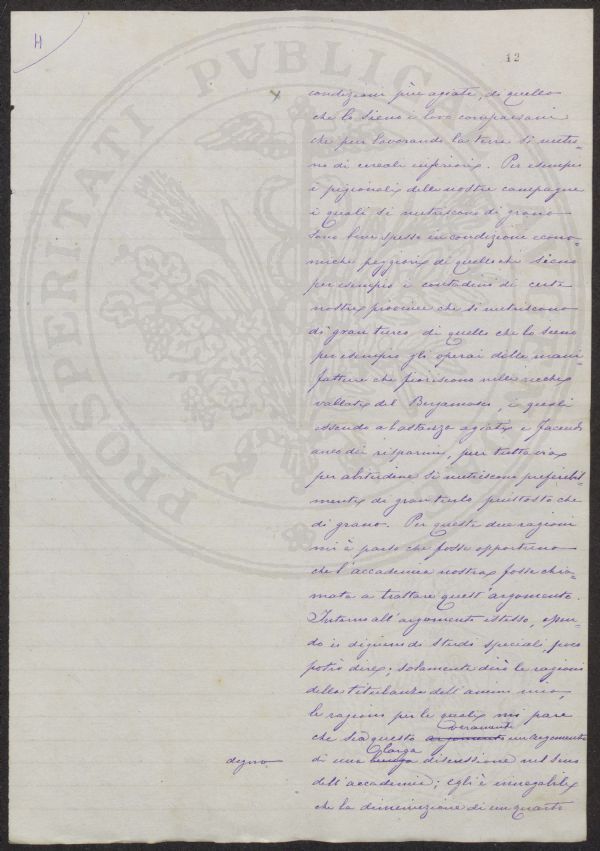 H
12
PROSPERITATI PVBLICAE
condizioni più agiate, di quello
che lo sieno i loro compaesani
che pur lavorando la terra si nutro-
no di cereali inferiori. Per esempio
i pigionali delle nostre campagne
i quali si nutriscono di grano
sono bene spesso in condizione econo-
miche peggiori di quello che sieno
per esempio i contadini di certe
nostre province che si nutriscono
di gran turco di quello che lo sieno
per esempio gli operai delle mani-
fatture che fioriscono nelle ricche
vallate del Bergamasco, i quali
essendo abbastanza agiati e facendo
anco dei risparmi, pur tuttavia
per abitudine si nutriscono preferibil-
mente di granturco piuttosto che
di grano. Per queste due ragioni
mi è parso che fosse opportuno
che l'accademia nostra fosse chia-
mata a trattare quest'argomento.
Intorno all'argomento istesso, essen-
do io digiuno di studi speciali, poco
potrò dire; solamente dirò le ragioni
della titubanza dell'animo mio,
le ragioni per le quali mi pare
veramente
che sia questo argomento un argomento
larga
degno di una lunga discussione nel seno
dell'accademia; egli è innegabile
che la diminuzione di un quarto